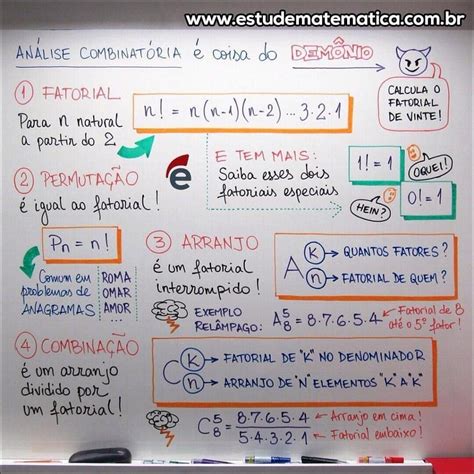 www.estudematematica.com.br
ANÁLISE COMBINATÓRIA é coisa do DEMÔNIO
CALCULA O
FATORIAL
DE VINTE!
1 FATORIAL
Para n natural
a partir do 2
n! = n(n-1)(n-2)...3.2.1
E TEM MAIS:
Saiba esses dois
fatoriais especiais
1! = 1
OQUEI!
0! = 1
HEIN?
e
2 PERMUTAÇÃO
é igual ao fatorial!
Pn = n!
Comum em
problemas de
ANAGRAMAS
ROMA
OMAR
AMOR
...
3 ARRANJO
é um fatorial
interrompido!
A
K → QUANTOS FATORES?
n → FATORIAL DE QUEM?
EXEMPLO
RELÂMPAGO:
A⁵₈ = 8.7.6.5.4
Fatorial de 8
até o 5º fator!
4 COMBINAÇÃO
é um arranjo
dividido por
um fatorial!
C
K → FATORIAL DE "K" NO DENOMINADOR
n → ARRANJO DE "N" ELEMENTOS "K" A "K"
C⁵₈ = 8.7.6.5.4 / 5.4.3.2.1
Arranjo em cima!
Fatorial embaixo!